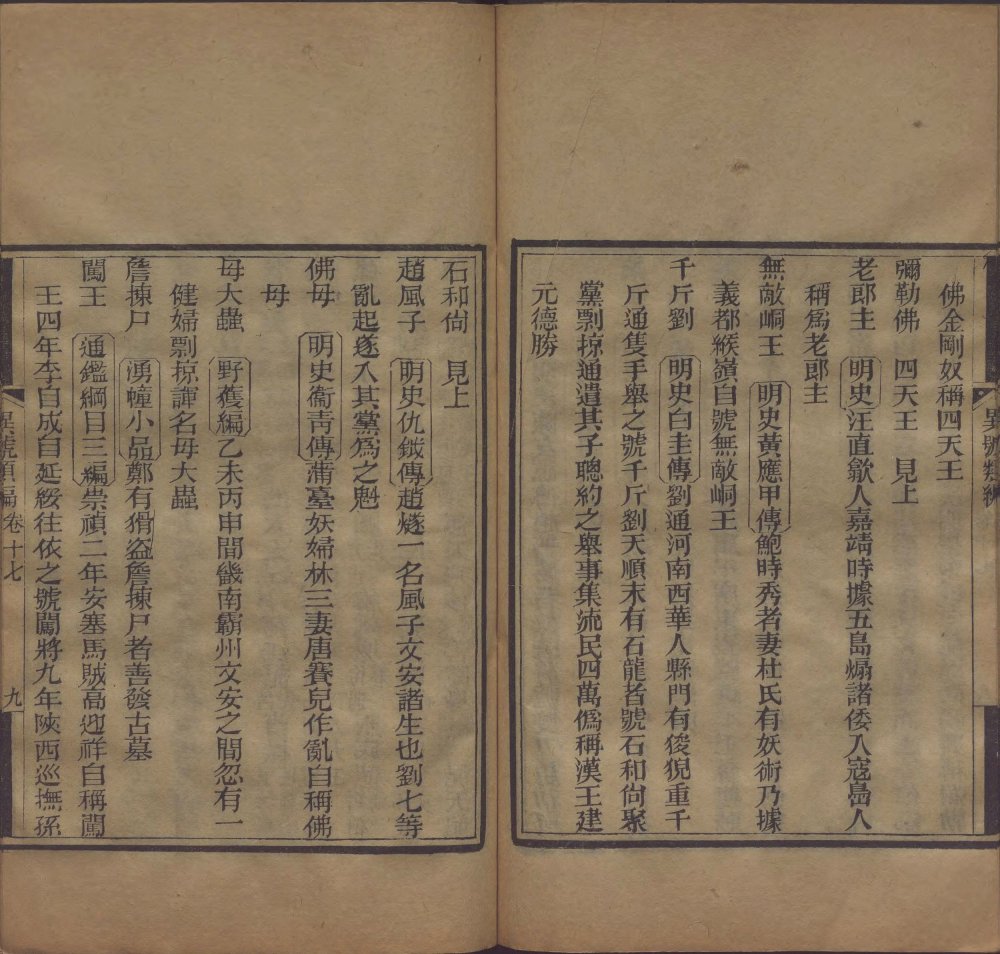 異號類編
佛金剛奴稱四天王
彌勒佛　四天王　見上
老郎主　明史汪直歙人嘉靖時據五島煽諸倭入寇島人
稱爲老郎主
無敵峒王　明史黃應甲傳鮑時秀者妻杜氏有妖術乃據
義都緱嶺自號無敵峒王
千斤劉　明史白圭傳劉通河南西華人縣門有狻猊重千
斤通隻手舉之號千斤劉天順末有石龍者號石和尙聚
黨剽掠通遣其子聰約之舉事集流民四萬僞稱漢王建
元德勝
石和尙　見上
趙風子　明史仇鉞傳趙燧一名風子文安諸生也劉七等
亂起遂入其黨爲之魁
佛母　明史衞靑傳蒲臺妖婦林三妻唐賽兒作亂自稱佛
母
母大蟲　野獲編乙未丙申間畿南霸州文安之間忽有一
健婦剽掠諢名母大蟲
詹揀尸　湧幢小品鄭有猾盜詹揀尸者善發古墓
闖王　通鑑綱目三編崇禎二年安塞馬賊高迎祥自稱闖
王四年李自成自延綏往依之號闖將九年陝西巡撫孫
異號類編　卷十七　九